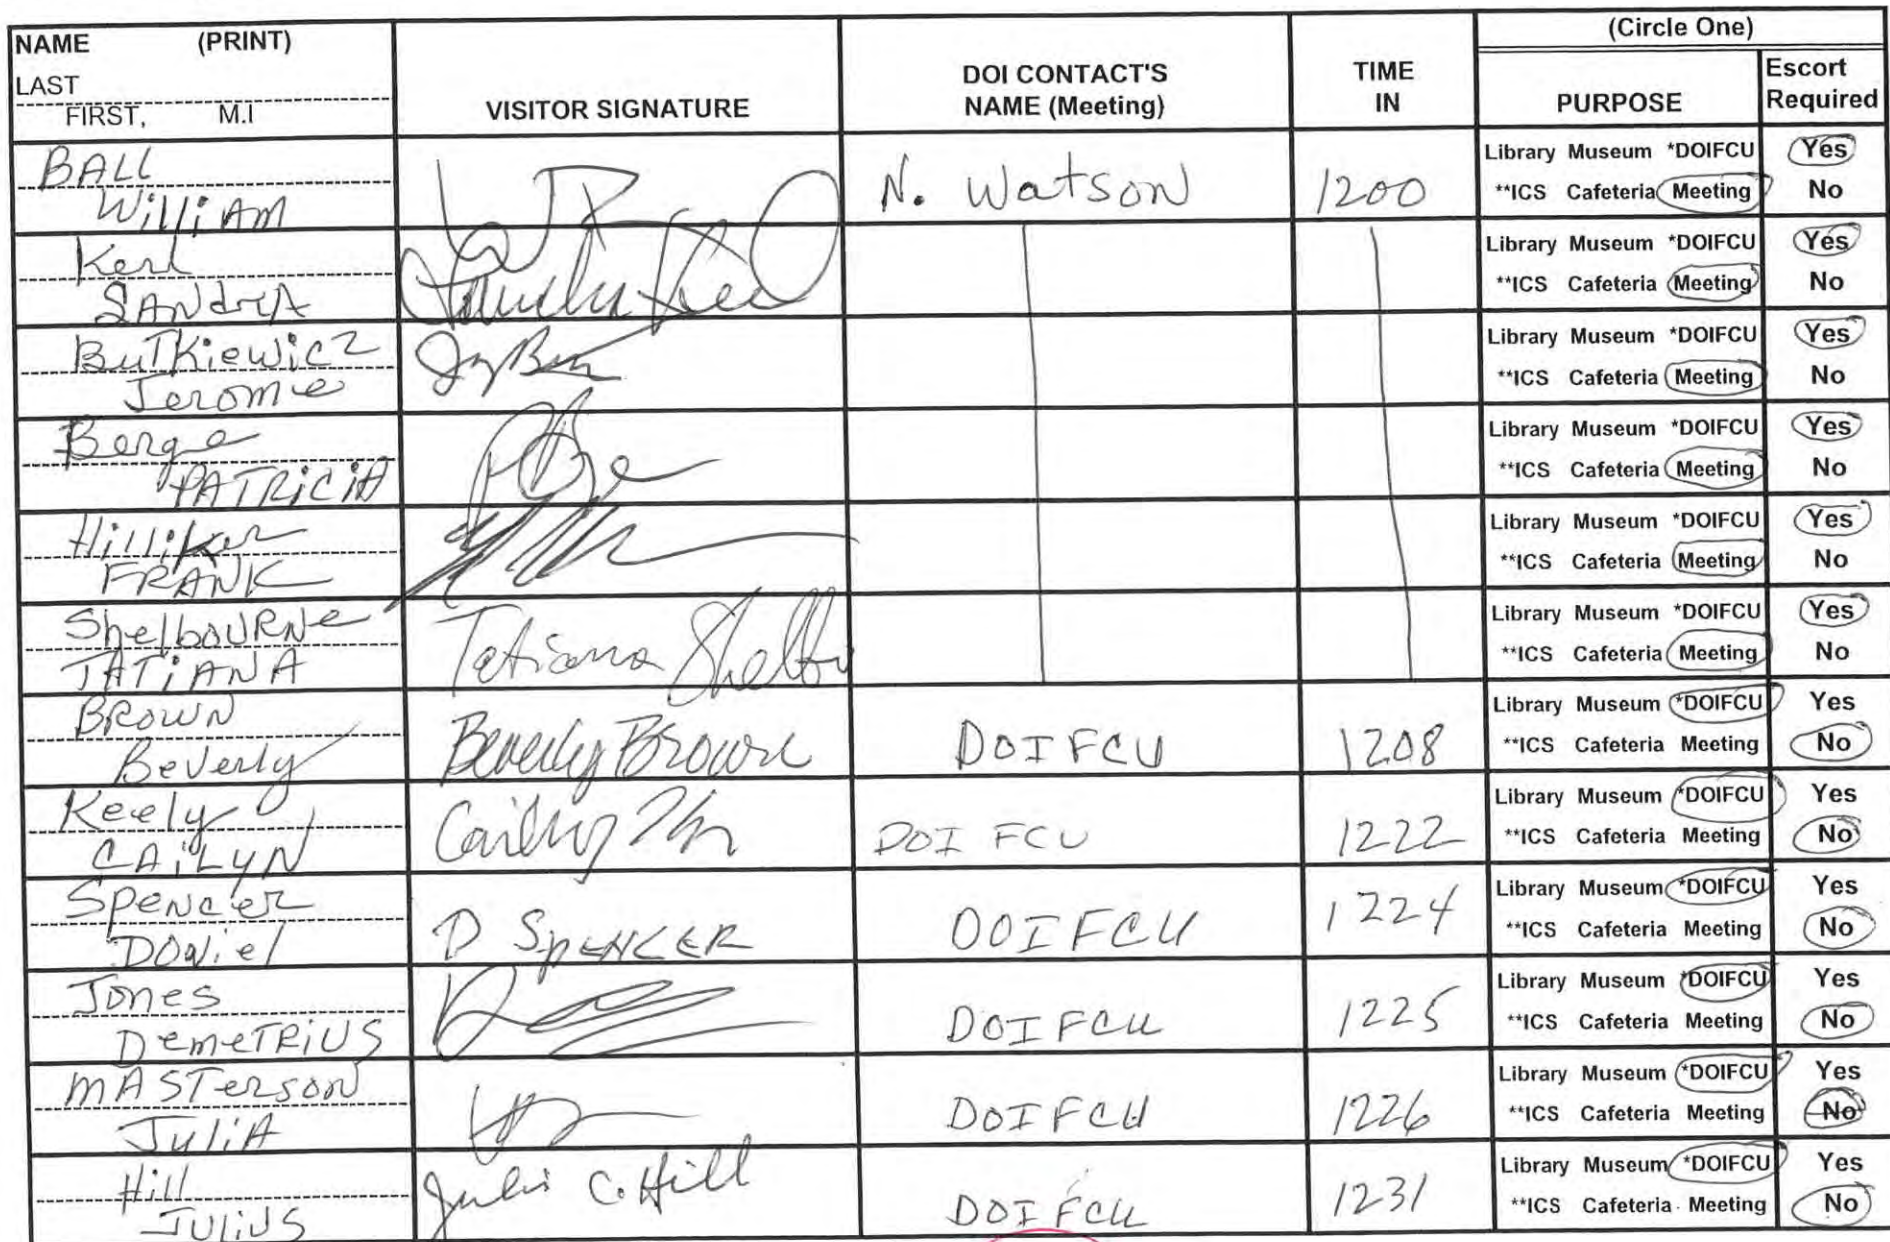 NAME (PRINT)
LAST
FIRST, M.I
VISITOR SIGNATURE
DOI CONTACT'S
NAME (Meeting)
TIME
IN
(Circle One)
PURPOSE
Escort
Required
BALL
WilliAM
N. Watson
1200
Library Museum *DOIFCU Yes
**ICS Cafeteria Meeting No
Kerl
SANdrA
Library Museum *DOIFCU Yes
**ICS Cafeteria Meeting No
ButKiewicz
Jerome
Library Museum *DOIFCU Yes
**ICS Cafeteria Meeting No
Berge
PATRiCiA
Library Museum *DOIFCU Yes
**ICS Cafeteria Meeting No
Hilliker
FRANK
Library Museum *DOIFCU Yes
**ICS Cafeteria Meeting No
ShelboURNe
TATiANA
Tatiana
Library Museum *DOIFCU Yes
**ICS Cafeteria Meeting No
BROWN
Beverly
Beverly Brown
DOIFCU
1208
Library Museum *DOIFCU Yes
**ICS Cafeteria Meeting No
Keely
CAiLYN
DOI FCU
1222
Library Museum *DOIFCU Yes
**ICS Cafeteria Meeting No
Spencer
DONiel
D SpENCER
DOIFCU
1224
Library Museum *DOIFCU Yes
**ICS Cafeteria Meeting No
Jones
DemeTRiUS
DOIFCU
1225
Library Museum *DOIFCU Yes
**ICS Cafeteria Meeting No
MASTerson
JuliA
DOIFCU
1226
Library Museum *DOIFCU Yes
**ICS Cafeteria Meeting No
Hill
JULiUS
C. Hill
DOIFCU
1231
Library Museum *DOIFCU Yes
**ICS Cafeteria Meeting No